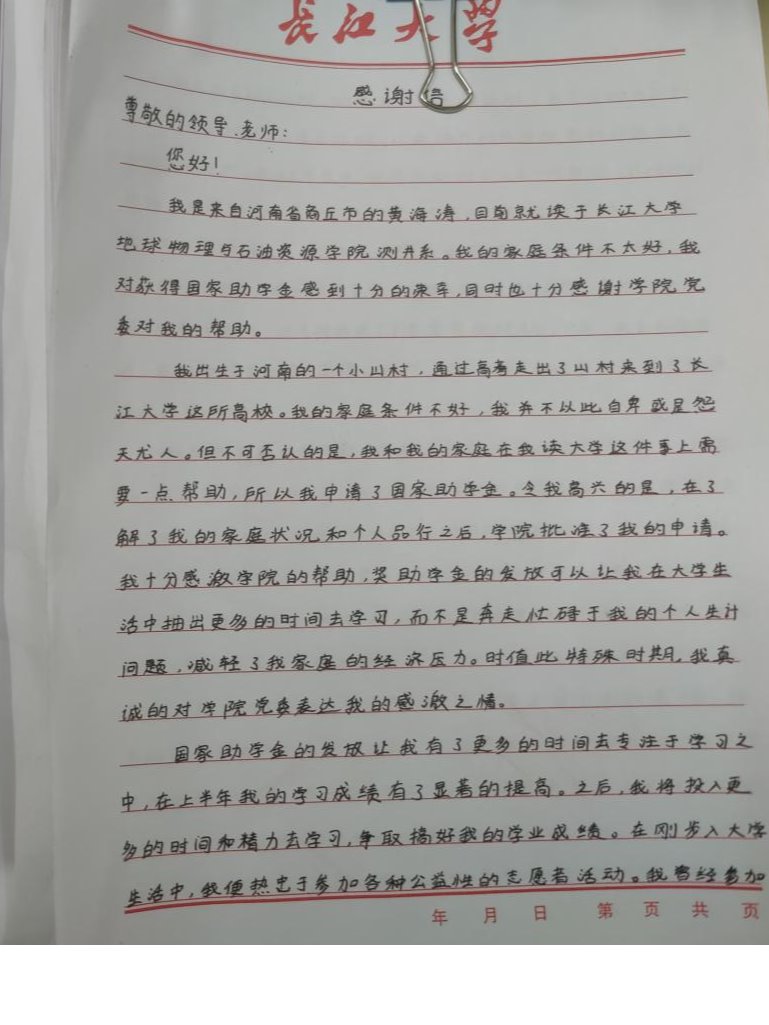 长江大学
感谢信
尊敬的领导、老师：
您好！
我是来自河南省商丘市的黄海涛，目前就读于长江大学
地球物理与石油资源学院测井系。我的家庭条件不太好，我
对获得国家助学金感到十分的荣幸，同时也十分感谢学院党
委对我的帮助。
我出生于河南的一个小山村，通过高考走出了山村来到了长
江大学这所高校。我的家庭条件不好，我并不以此自卑或是怨
天尤人。但不可否认的是，我和我的家庭在我读大学这件事上需
要一点帮助，所以我申请了国家助学金。令我高兴的是，在了
解了我的家庭状况和个人品行之后，学院批准了我的申请。
我十分感激学院的帮助，奖助学金的发放可以让我在大学生
活中抽出更多的时间去学习，而不是奔走忙碍于我的个人生计
问题，减轻了我家庭的经济压力。时值此特殊时期，我真
诚的对学院党委表达我的感激之情。
国家助学金的发放让我有了更多的时间去专注于学习之
中，在上半年我的学习成绩有了显著的提高。之后，我将投入更
多的时间和精力去学习，争取搞好我的学业成绩。在刚步入大学
生活中，我便热忠于参加各种公益性的志愿者活动。我曾经参加
年 月 日 第 页 共 页